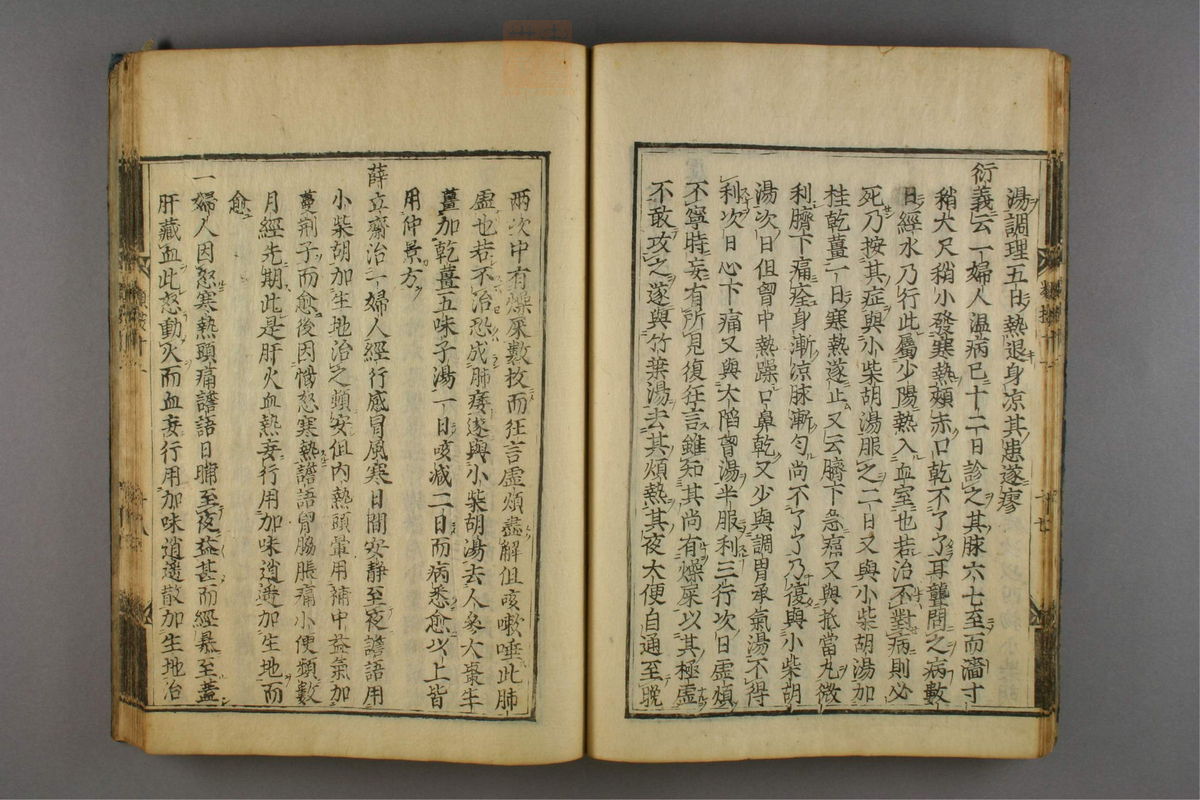 湯調理五日熱退身凉其患遂瘳
衍義云一婦人温病已十二日診之其脉六七至而濇寸
稍大尺稍小發寒熱頰赤口乾不了了耳聾問之病數
日經水乃行此屬少陽熱入血室也若治不對病則必
死乃按其症與小柴胡湯服之二日又與小柴胡湯加
桂乾薑一日寒熱遂止又云臍下急痛又與抵當丸微
利臍下痛痊身漸凉脉漸匀尚不了了乃復與小柴胡
湯次日但胷中熱躁口鼻乾又少與調胃承氣湯不得
利次日心下痛又與大陷胷湯半服利三行次日虚煩
不寧時妄有所見復狂言雖知其尚有燥屎以其極虚
不敢攻之遂與竹葉湯去其煩熱其夜大便自通至晩
兩次中有燥屎數枚而狂言虚煩盡解但咳嗽唾此肺
虚也若不治恐成肺痿遂與小柴胡湯去人參大棗生
薑加乾薑五味子湯一日咳减二日而病悉愈以上皆
用仲景方
薛立齋治一婦人經行感冒風寒日間安静至夜譫語用
小柴胡加生地治之頓安但内熱頭暈用補中益氣加
蔓荆子而愈後因惱怒寒熱譫語胷脇脹痛小便頻數
月經先期此是肝火血熱妄行用加味逍遥加生地而
愈
一婦人因怒寒熱頭痛譫語日晡至夜益甚而經暴至蓋
肝藏血此怒動火而血妄行用加味逍遥散加生地治